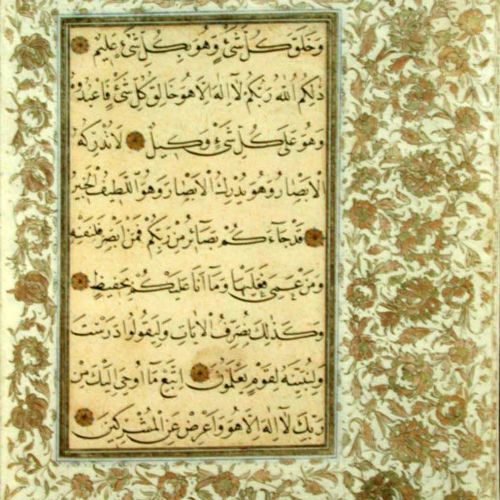 وَخَلَقَ كُلَّ شَىْءٍ وَهُوَ بِكُلِّ شَىْءٍ عَلِيمٌ
ذٰلِكُمُ اللهُ رَبُّكُمْ لَآ اِلٰهَ اِلَّا هُوَ خَالِقُ كُلِّ شَىْءٍ فَاعْبُدُوهُ
وَهُوَ عَلٰى كُلِّ شَىْءٍ وَكِيلٌ لَا تُدْرِكُهُ
الْاَبْصَارُ وَهُوَ يُدْرِكُ الْاَبْصَارَ وَهُوَ اللَّطِيفُ الْخَبِيرُ
قَدْ جَآءَكُمْ بَصَآئِرُ مِنْ رَبِّكُمْ فَمَنْ اَبْصَرَ فَلِنَفْسِهِ
وَمَنْ عَمِىَ فَعَلَيْهَا وَمَآ اَنَا عَلَيْكُمْ بِحَفِيظٍ
وَكَذٰلِكَ نُصَرِّفُ الْاٰيَاتِ وَلِيَقُولُوا دَرَسْتَ
وَلِنُبَيِّنَهُ لِقَوْمٍ يَعْلَمُونَ اِتَّبِعْ مَآ اُوحِىَ اِلَيْكَ مِنْ
رَبِّكَ لَآ اِلٰهَ اِلَّا هُوَ وَاَعْرِضْ عَنِ الْمُشْرِكِينَ